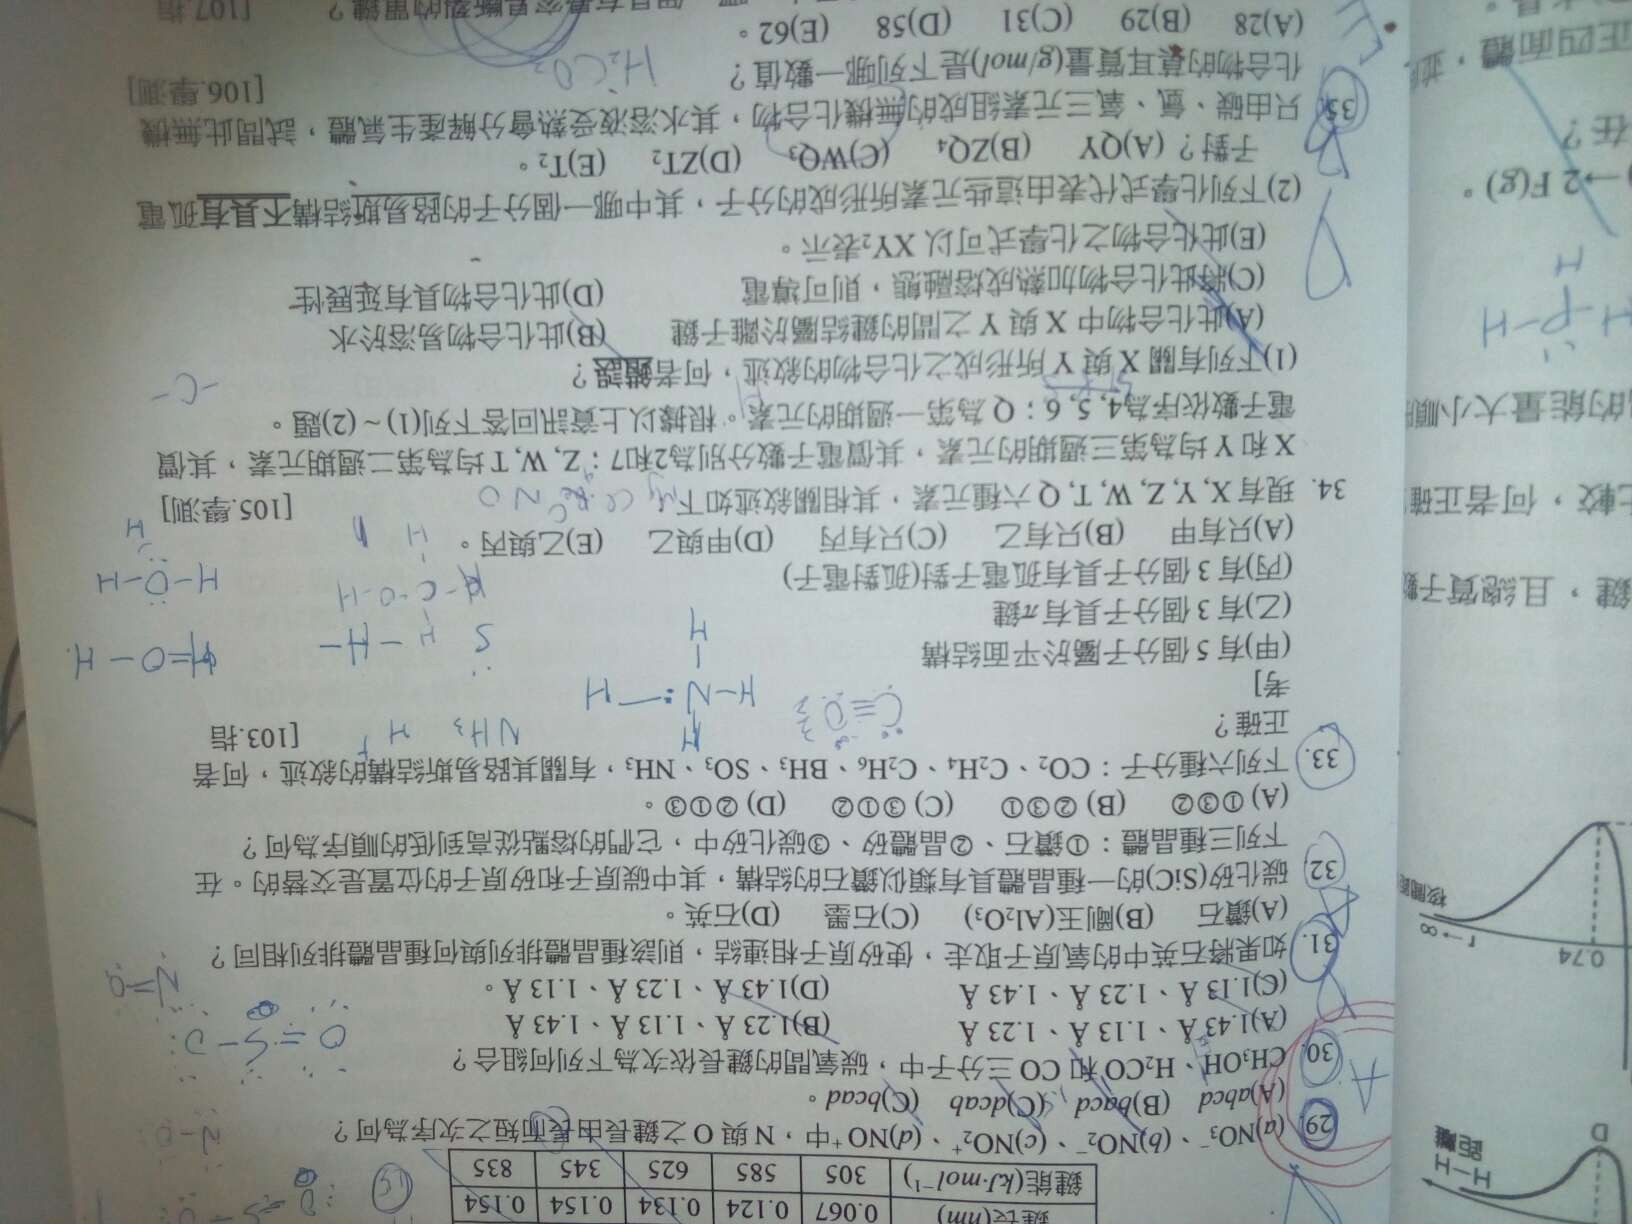 鍵長(nm) 0.067 0.124 0.134 0.154 0.154
鍵能(kJ·mol⁻¹) 305 585 625 345 835
29. (a)NO₃⁻、(b)NO₂⁻、(c)NO₂⁺、(d)NO⁺中，N與O之鍵長由長而短之次序為何？
(A)abcd (B)bacd (C)dcab (C)bcad。
30. CH₃OH、H₂CO和CO三分子中，碳氧間的鍵長依次為下列何組合？
(A)1.43 Å、1.13 Å、1.23 Å (B)1.23 Å、1.13 Å、1.43 Å
(C)1.13 Å、1.23 Å、1.43 Å (D)1.43 Å、1.23 Å、1.13 Å。
31. 如果將石英中的氧原子取走，使矽原子相連結，則該種晶體排列與何種晶體排列相同？
(A)鑽石 (B)剛玉(Al₂O₃) (C)石墨 (D)石英。
32 碳化矽(SiC)的一種晶體具有類似鑽石的結構，其中碳原子和矽原子的位置是交替的。在
下列三種晶體：①鑽石、②晶體矽、③碳化矽中，它們的熔點從高到低的順序為何？
(A) ①③② (B) ②③① (C) ③①② (D) ②①③。
33. 下列六種分子：CO₂、C₂H₄、C₂H₆、BH₃、SO₃、NH₃，有關其路易斯結構的敘述，何者
正確？ [103.指
考]
(甲)有5個分子屬於平面結構
(乙)有3個分子具有π鍵
(丙)有3個分子具有孤電子對(孤對電子)
(A)只有甲 (B)只有乙 (C)只有丙 (D)甲與乙 (E)乙與丙。
34. 現有X, Y, Z, W, T, Q六種元素，其相關敘述如下 [105.學測]
X和Y均為第三週期的元素，其價電子數分別為2和7；Z, W, T均為第二週期元素，其價
電子數依序為4, 5, 6；Q為第一週期的元素。根據以上資訊回答下列(1)～(2)題。
(1)下列有關X與Y所形成之化合物的敘述，何者錯誤？
(A)此化合物中X與Y之間的鍵結屬於離子鍵 (B)此化合物易溶於水
(C)將此化合物加熱成熔融態，則可導電 (D)此化合物具有延展性
(E)此化合物之化學式可以XY₂表示。
(2)下列化學式代表由這些元素所形成的分子，其中哪一個分子的路易斯結構不具有孤電
子對？(A)QY (B)ZQ₄ (C)WQ₃ (D)ZT₂ (E)T₂。
35. 只由碳、氫、氧三元素組成的無機化合物，其水溶液受熱會分解產生氣體，試問此無機
化合物的莫耳質量(g/mol)是下列哪一數值？ [106.學測]
H₂CO₃
(A)28 (B)29 (C)31 (D)58 (E)62。
[107.指
NH₃
Mg Cl C N O
A
D
H—H
距離
0.74
r→∞
核間距
鍵，且總質子數
比較，何者正確
的能量大小順
H-P-H
H
)→2 F(g)。
在？
正四面體，並